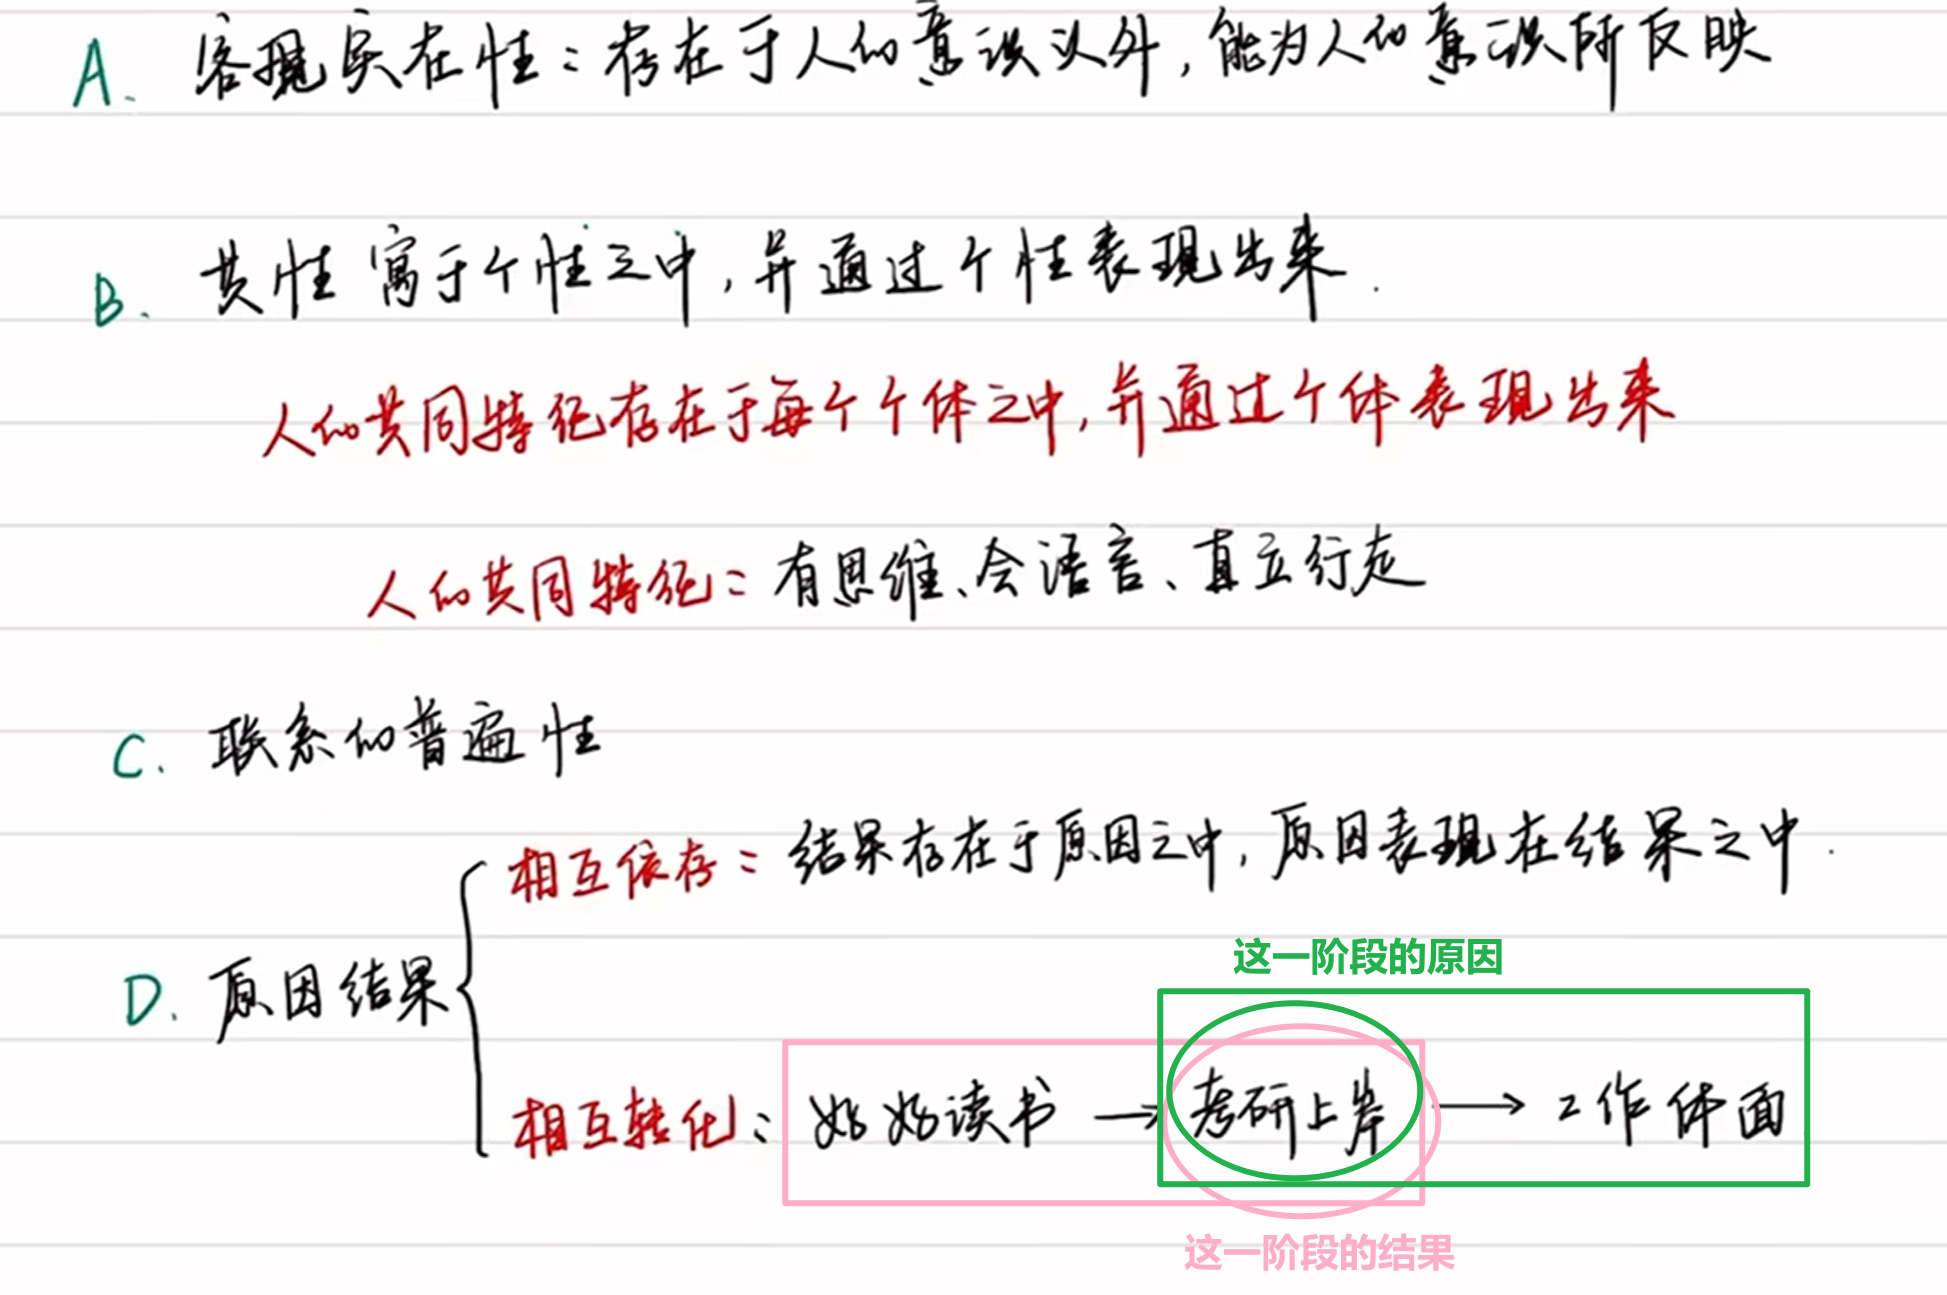 A. 客观实在性：存在于人的意识以外，能为人的意识所反映
B. 共性寓于个性之中，并通过个性表现出来.
人的共同特征存在于每个个体之中，并通过个体表现出来
人的共同特征：有思维、会语言、直立行走
C. 联系的普遍性
相互依存：结果存在于原因之中，原因表现在结果之中.
这一阶段的原因
D. 原因结果
相互转化：好好读书 → 考研上岸 → 工作体面
这一阶段的结果